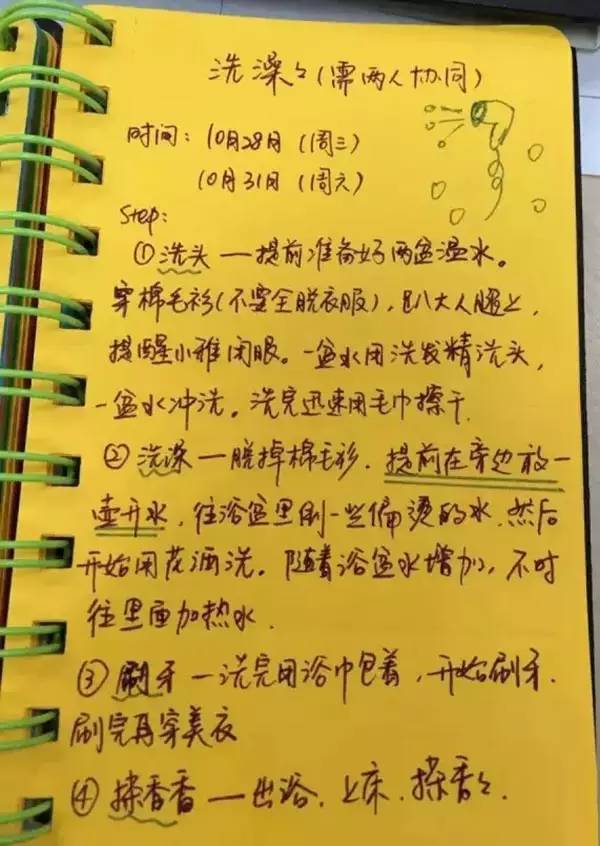 洗澡々(需两人协同)
时间：10月28日（周三）
10月31日（周六）
Step：
①洗头—提前准备好两盆温水。
穿棉毛衫(不要全脱衣服)，趴大人腿上，
提醒小雅闭眼。一盆水用洗发精洗头，
一盆水冲洗。洗完迅速用毛巾擦干.
②洗澡—脱掉棉毛衫．提前在旁边放一
壶开水，往浴盆里倒一些偏烫的水．然后
开始用花洒洗．随着浴盆水增加，不时
往里面加热水．
③刷牙—洗完用浴巾包着，开始刷牙．
刷完再穿美衣
④搽香香—出浴．上床．搽香々．